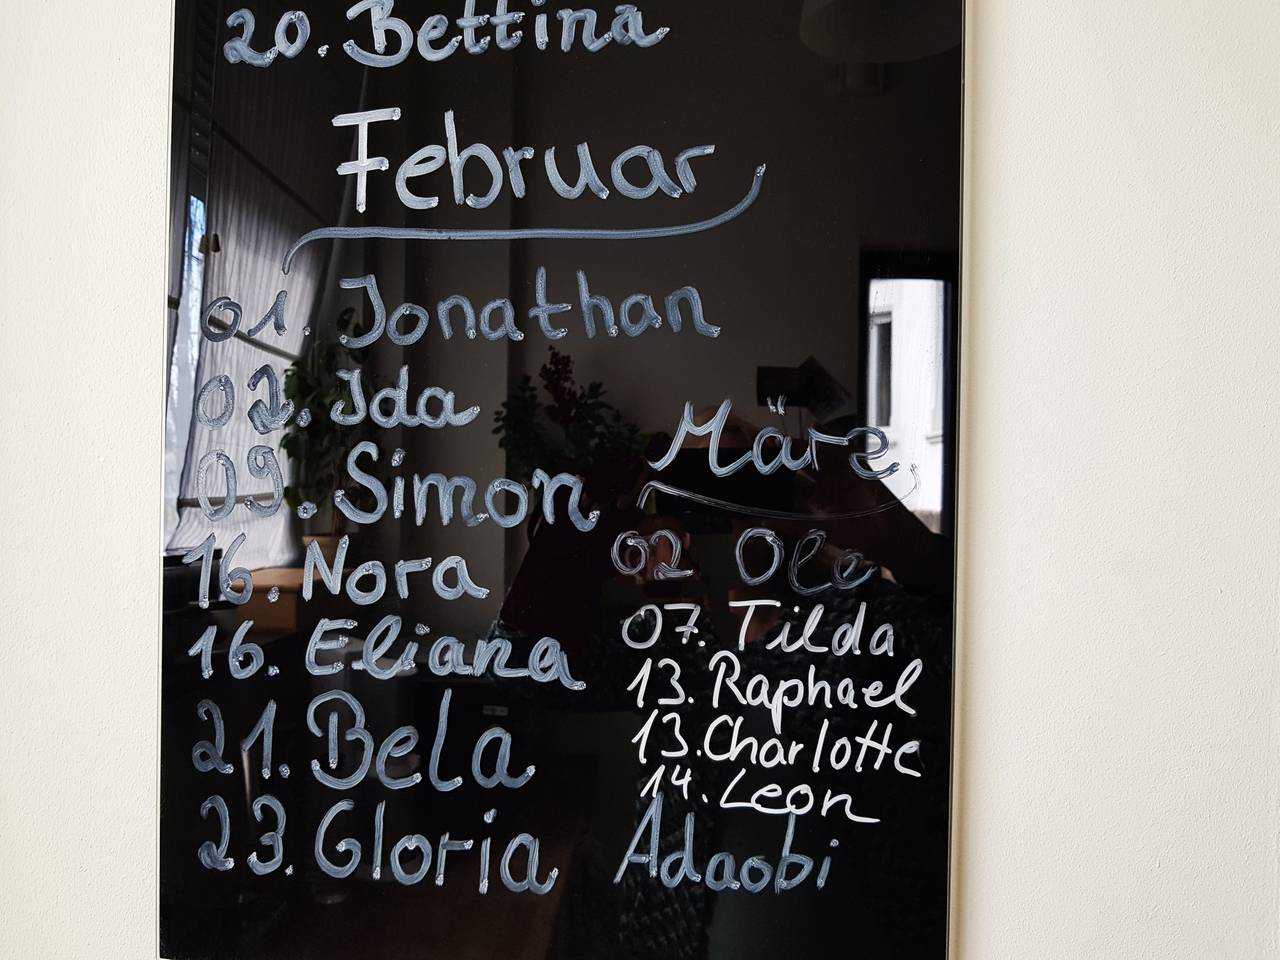 20. Bettina
Februar
01. Jonathan
02. Ida
09. Simon
16. Nora
16. Eliana
21. Bela
23. Gloria
März
02 Ole
07. Tilda
13. Raphael
13. Charlotte
14. Leon
Adaobi